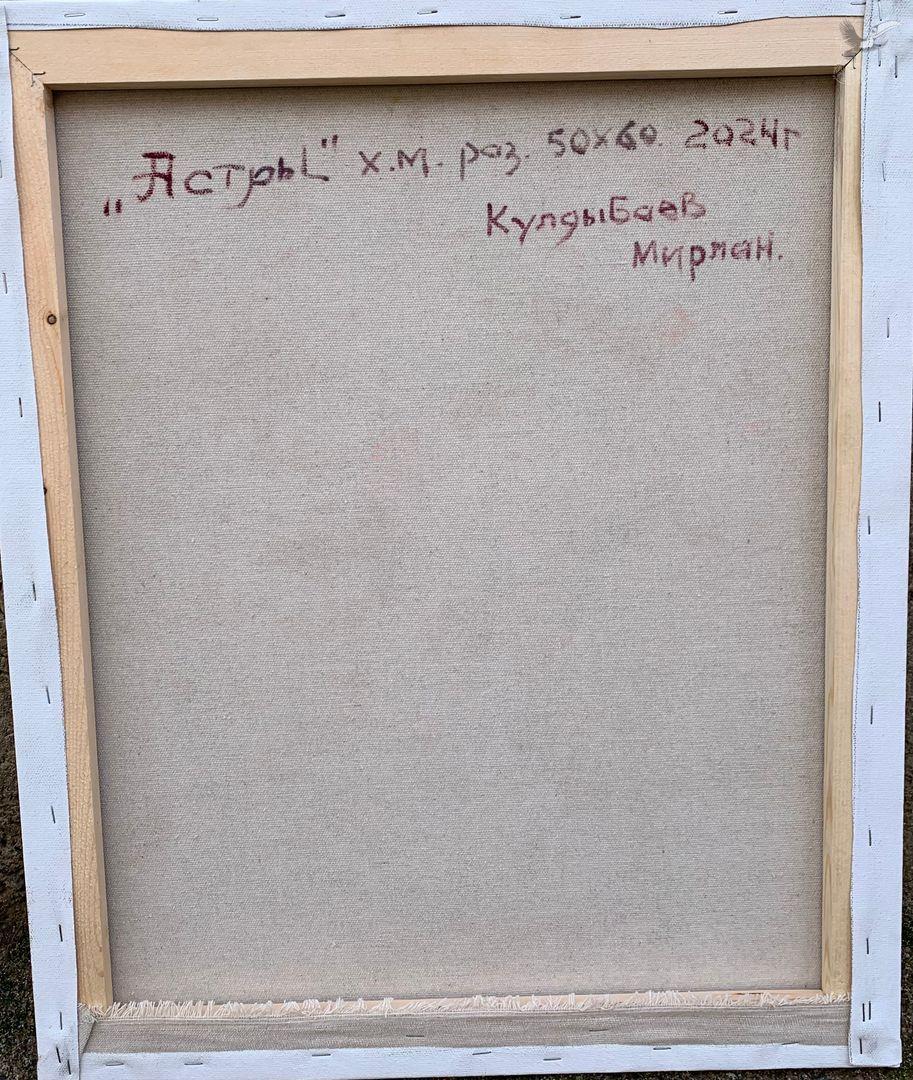 „Астры" х.м. раз. 50х60. 2024г
Кулдыбаев
Мирлан.